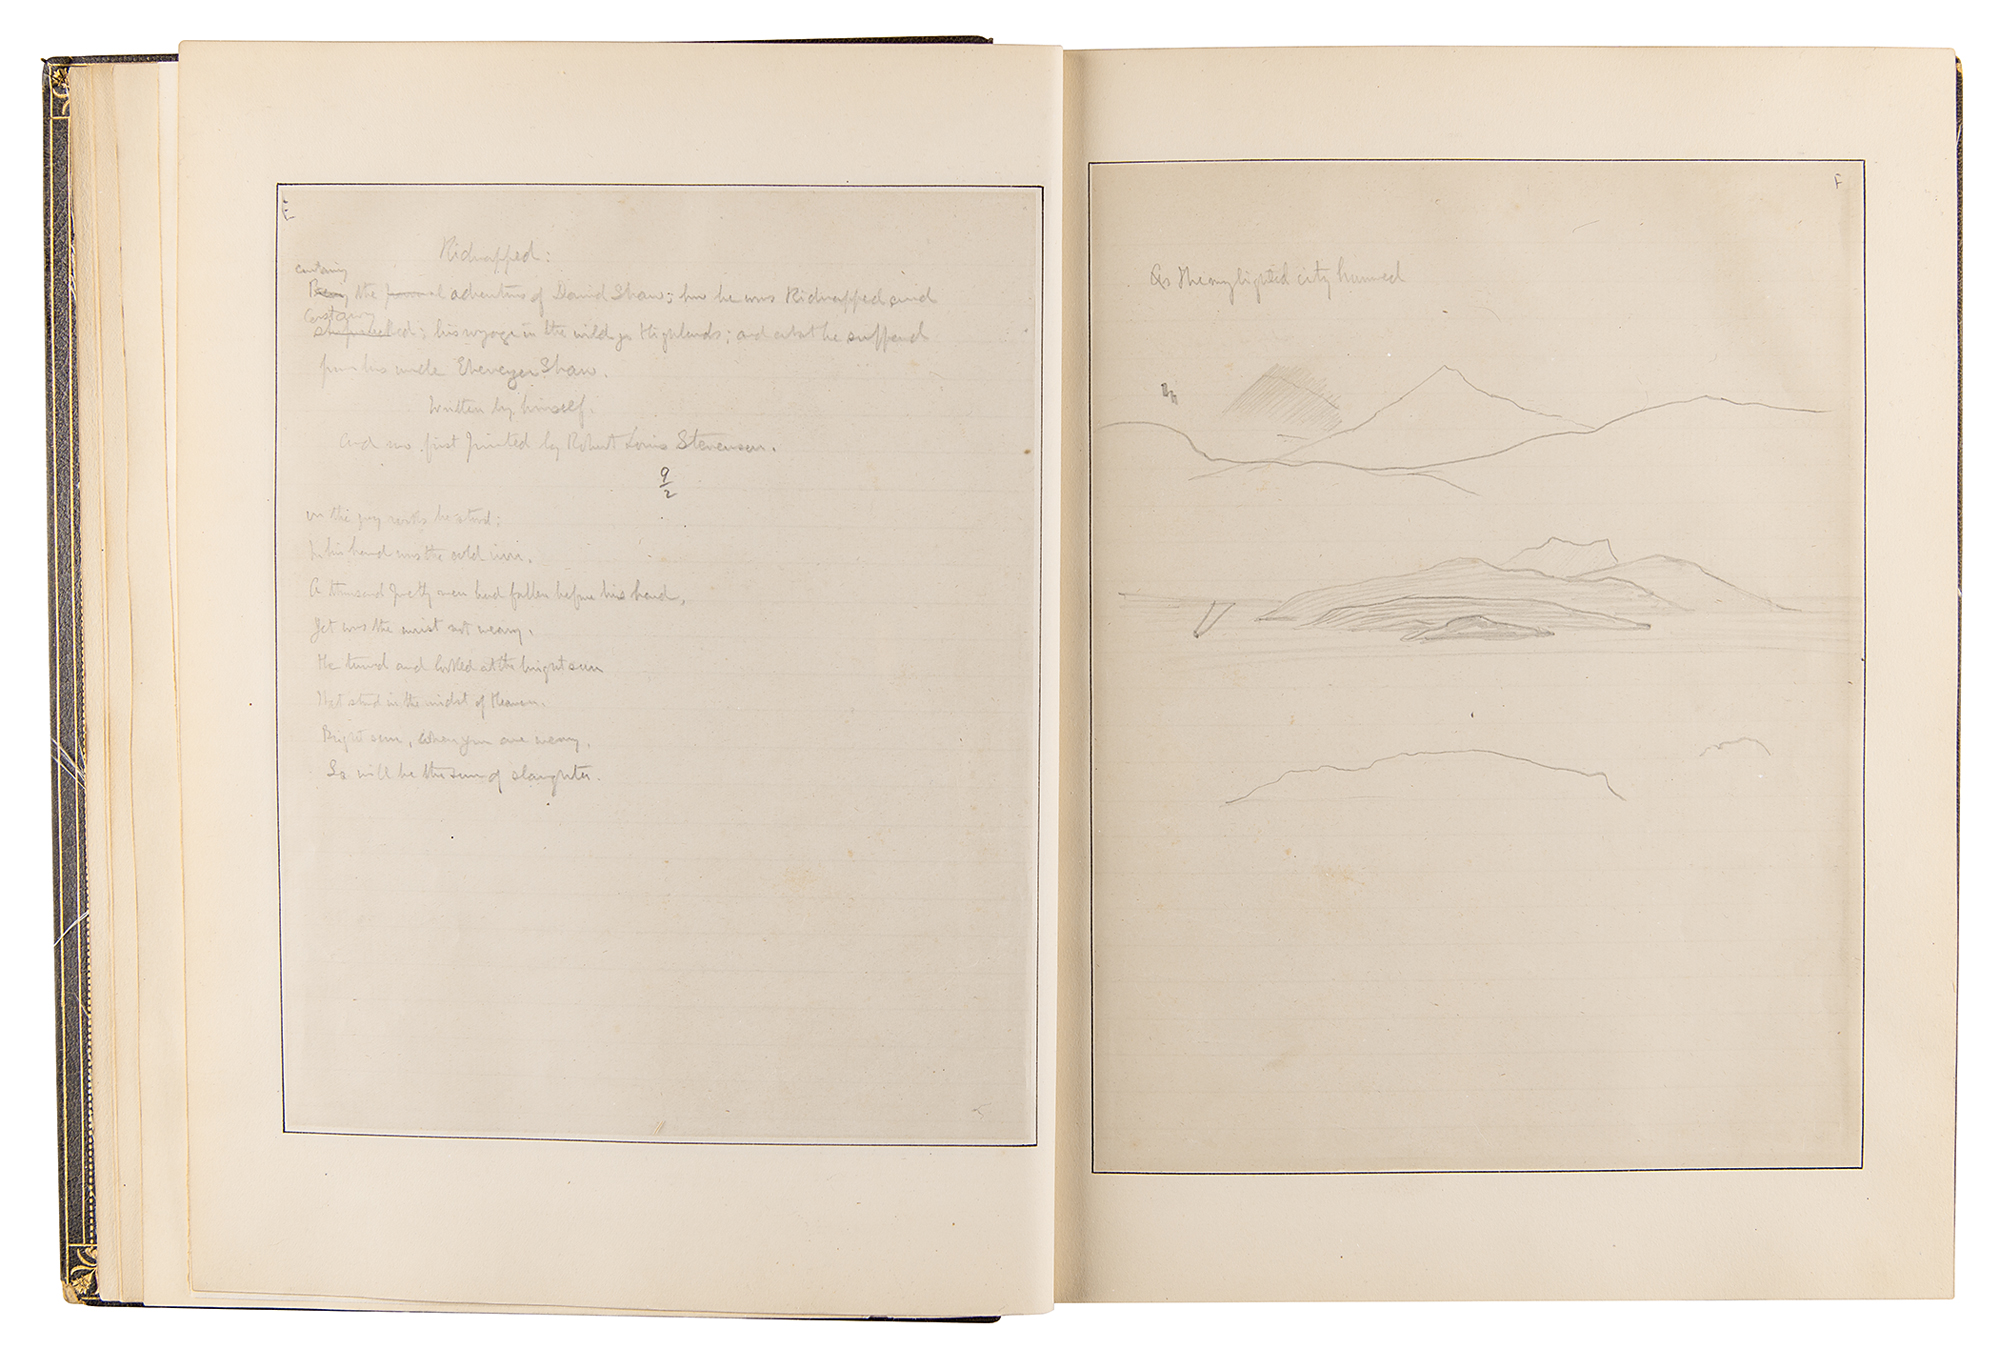 E
Kidnapped:
containing
Being the personal adventures of David Shaw; how he was Kidnapped and
Castaway
shipwrecked; his voyage in the wild Highlands; and what he suffered
from his uncle Ebenezer Shaw.
Written by himself.
And now first printed by Robert Louis Stevenson.
9
2
On the grey rocks he stood;
In his hand was the cold iron.
A thousand pretty men had fallen before his hand,
Yet was the wrist not weary.
He turned and looked at the bright sun
That stood in the midst of Heaven.
Bright sun, when you are weary,
So will be the sun of slaughter.
F
As the
lighted city hummed